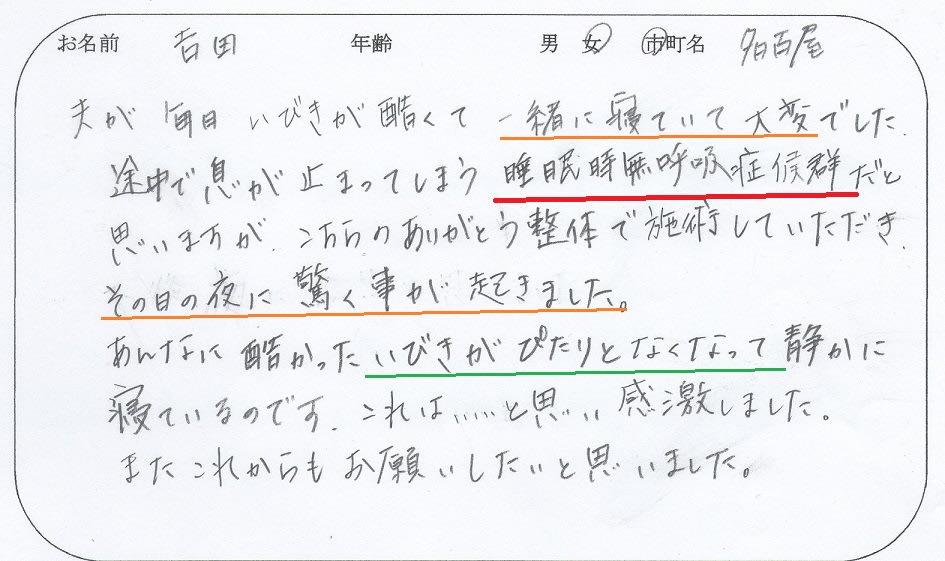 お名前 吉田 年齢 男 女 市町名 名古屋
夫が 毎日 いびきが酷くて 一緒に寝ていて 大変でした。
途中で息が止まってしまう 睡眠時無呼吸症候群だと
思いますが、こちらのありがとう整体で施術していただき、
その日の夜に 驚く事が起きました。
あんなに酷かったいびきがぴたりとなくなって静かに
寝ているのです、これは……と思い感激しました。
またこれからもお願いしたいと思いました。